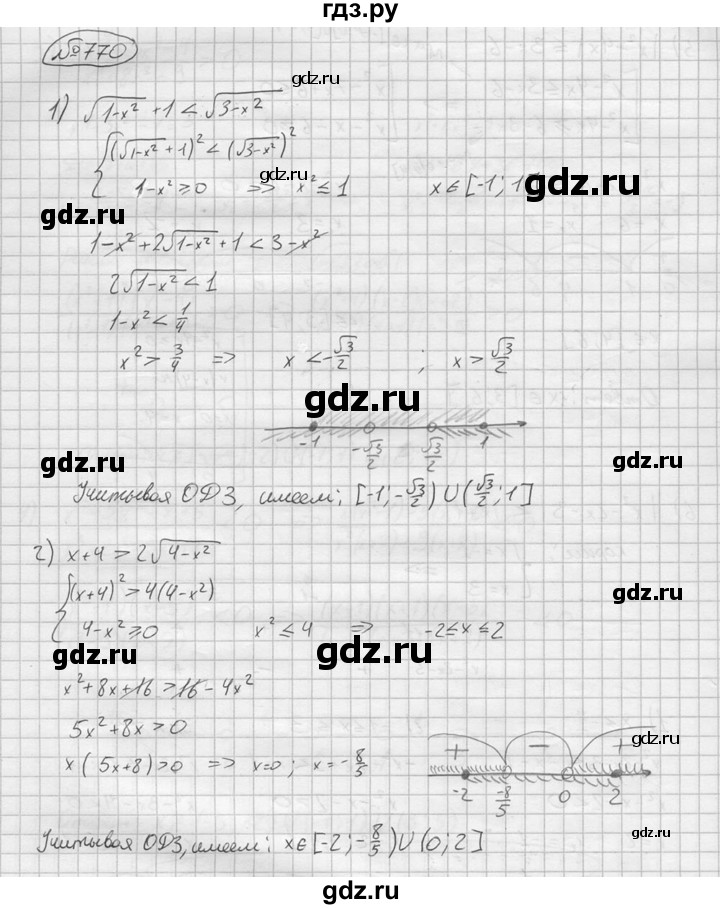 гдз.ру
№770
gdz.ru
1) √(1-x²) + 1 < √(3-x²)
{ (√(1-x²) + 1)² < (√(3-x²))²
gdz.ru
1-x² ≥ 0 => x² ≤ 1 x ∈ [-1; 1]
gdz.ru
gdz.ru
1-x² + 2√(1-x²) + 1 < 3-x²
2√(1-x²) < 1
1-x² < 1/4
x² > 3/4 => x < -√3/2 ; x > √3/2
gdz.ru
-1 -√3/2 √3/2 1
gdz.ru
gdz.ru
Учитывая ОДЗ, имеем: [-1; -√3/2) ∪ (√3/2; 1]
2) x+4 > 2√(4-x²)
{ (x+4)² > 4(4-x²)
gdz.ru
4-x² ≥ 0 x² ≤ 4 => -2 ≤ x ≤ 2
gdz.ru
gdz.ru
x² + 8x + 16 > 16 - 4x²
5x² + 8x > 0
gdz.ru
x(5x+8) > 0 => x=0; x=-8/5
+ - +
-2 -8/5 0 2
gdz.ru
Учитывая ОДЗ, имеем: x ∈ [-2; -8/5) ∪ (0; 2]
gdz.ru